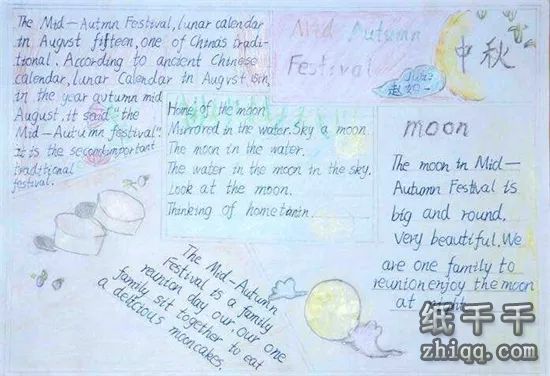 The Mid-Autmn Festival, lunar calendar
in August fifteen, one of China's tradi-
tional. According to ancient Chinese
calendar, lunar Calendar in August
in the year autumn mid
August. it said "the
Mid-Autumn festival".
It is the second important
traditional
festival.
Mid Autumn
Festival
中秋
Home of the moon
Mirrored in the water. Sky a moon.
The moon in the water.
The water in the moon in the sky.
Look at the moon.
Thinking of
moon
The moon in Mid-
Autumn Festival is
big and round,
very beautiful. We
are one family to
reunion enjoy the moon
at night.
The Mid-Autumn
Festival is a family
reunion day our. Our one
family sit together to eat
a delicious mooncakes.
纸千千
zhiqq.com